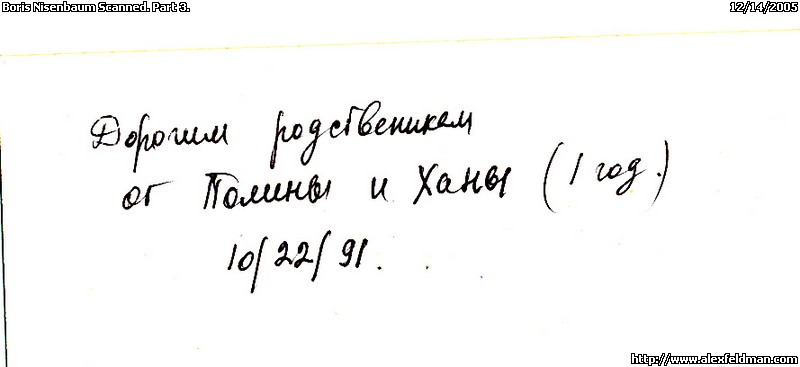 Boris Nisenbaum Scanned. Part 3.
12/14/2005
Дорогим родственикам
от Полины и Ханы (1 год.)
10/22/91.
http://www.alexfeldman.com/